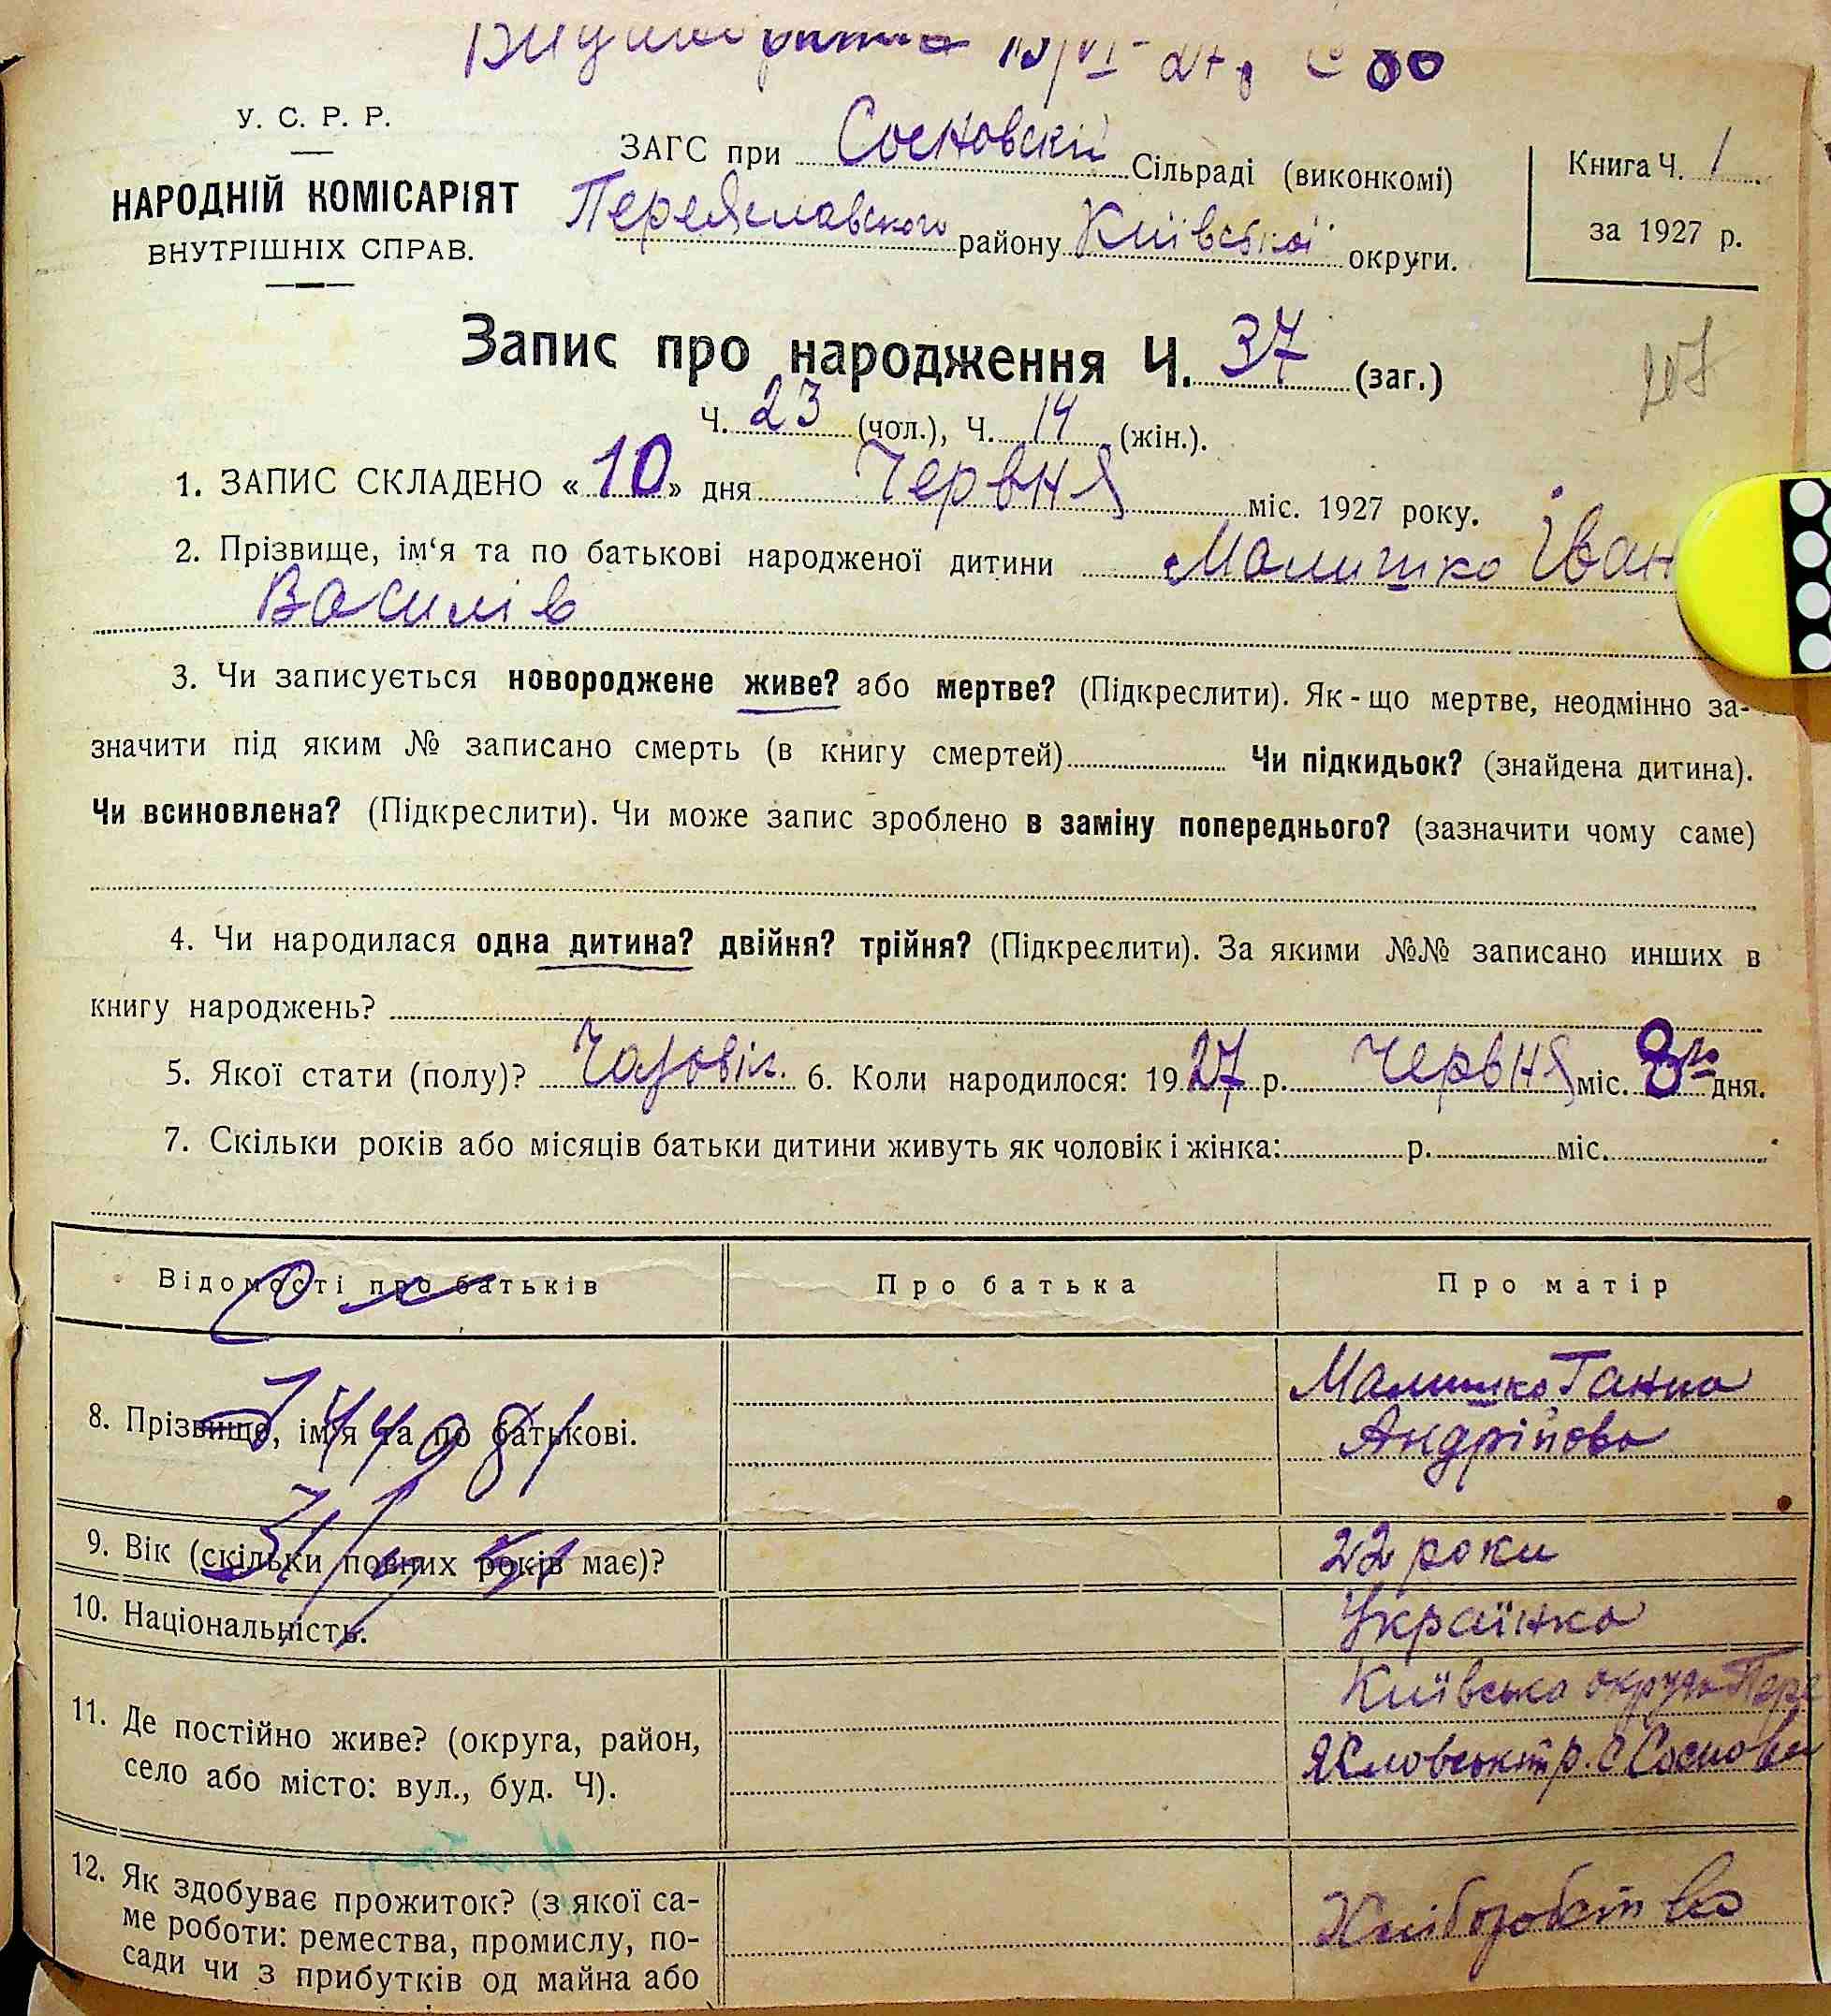 У. С. Р. Р.
НАРОДНІЙ КОМІСАРІЯТ
ВНУТРІШНІХ СПРАВ.
ЗАГС при Сосновскій Сільраді (виконкомі)
Переяславского району Київської округи.
Книга Ч. 1
за 1927 р.
Запис про народження Ч. 37 (заг.)
Ч. 23 (чол.), Ч. 14 (жін.).
1. ЗАПИС СКЛАДЕНО « 10 » дня Червня міс. 1927 року.
2. Прізвище, ім‘я та по батькові народженої дитини Малишко Іван
Василів
3. Чи записується новороджене живе? або мертве? (Підкреслити). Як - що мертве, неодмінно за-
значити під яким № записано смерть (в книгу смертей) Чи підкидьок? (знайдена дитина).
Чи всиновлена? (Підкреслити). Чи може запис зроблено в заміну попереднього? (зазначити чому саме)
4. Чи народилася одна дитина? двійня? трійня? (Підкреслити). За якими №№ записано инших в
книгу народжень?
5. Якої стати (полу)? Чоловіч. 6. Коли народилося: 1927 р. Червня міс. 8го дня.
7. Скільки років або місяців батьки дитини живуть як чоловік і жінка: р. міс.
Відомості про батьків Про батька Про матір
8. Прізвище, ім‘я та по батькові.
Малишко Ганна
Андрійова
9. Вік (скільки повних років має)? 22 роки
10. Національність. Українка
11. Де постійно живе? (округа, район,
село або місто: вул., буд. Ч).
Київська округа Пере
яславськ р. с Соснова
12. Як здобуває прожиток? (з якої са-
ме роботи: ремества, промислу, по-
сади чи з прибутків од майна або
Хліборобство